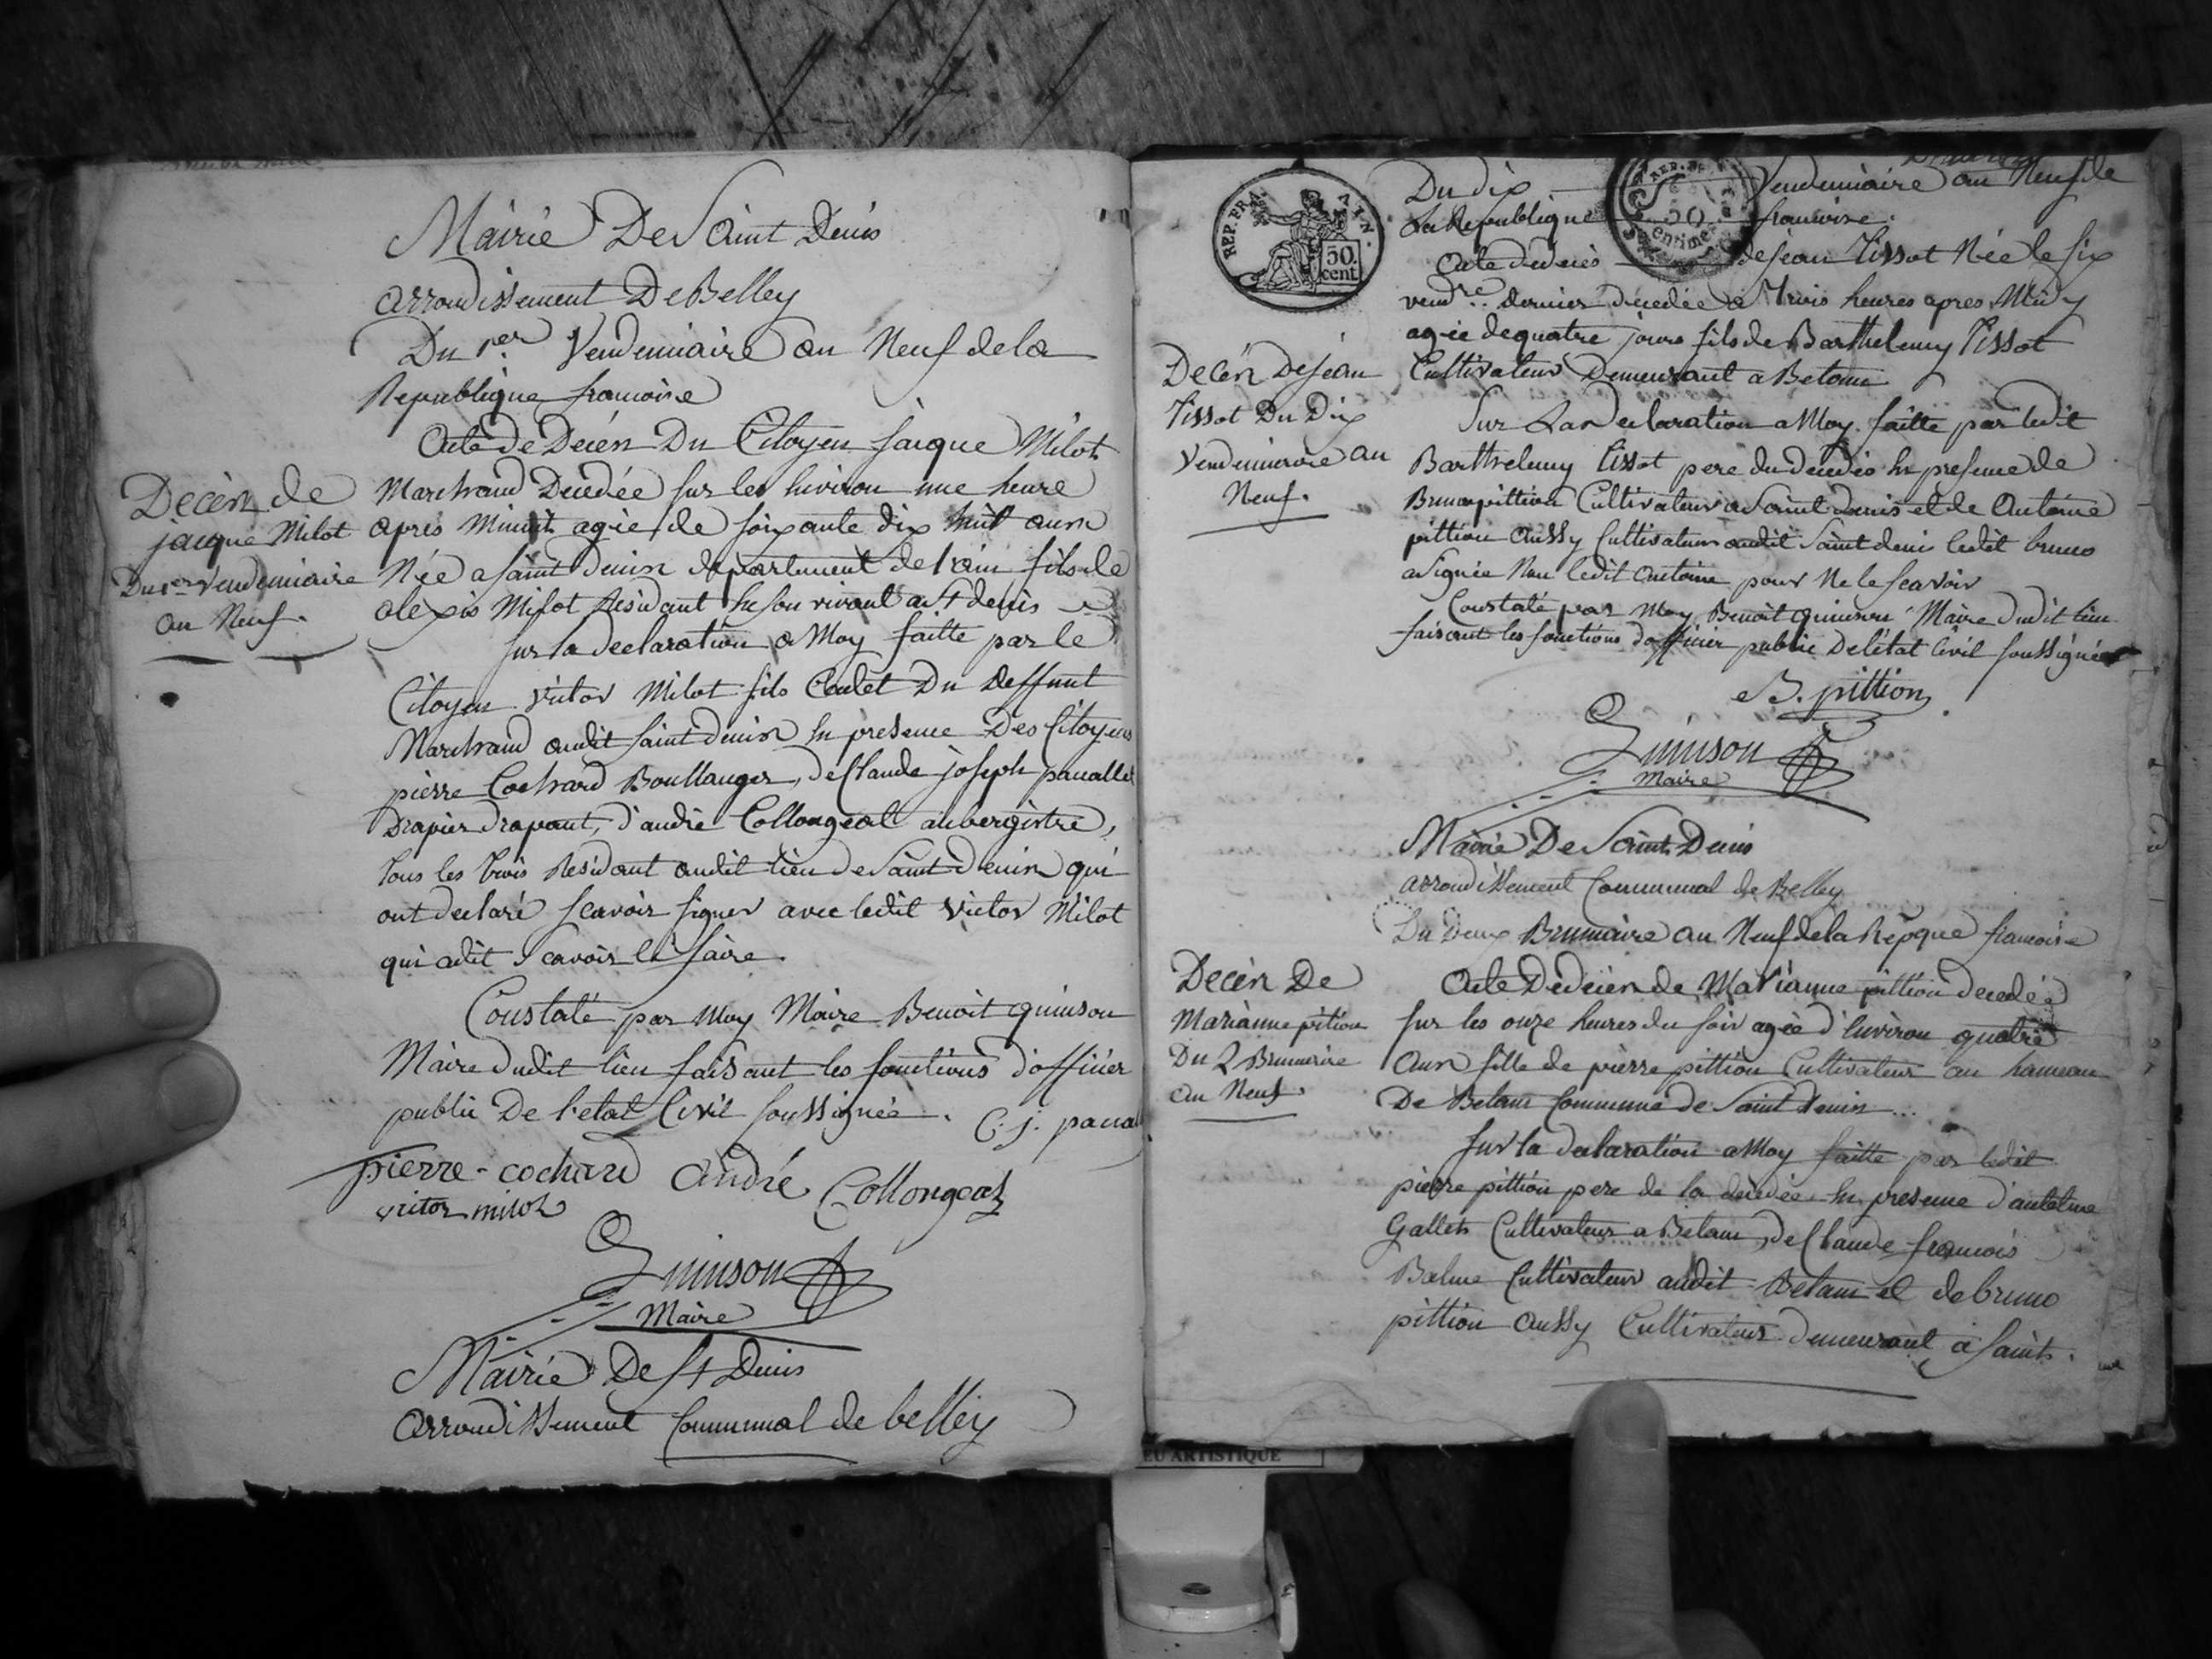 Mairie De Saint Denis
arrondissement De Belley
Du 1er Vendemiaire an Neuf de la
Republique francoise
Acte de Decés Du Citoyen Jacque Milot
Marchand Decedée sur les huviron une heure
apres Minuit agée de soixante dix huit anns
Née a saint denis departement de l'ain fils de
alexis Milot Residant En son vivant a St denis
Decés de
jacque Milot
Du 1er Vendemiaire
an Neuf.
sur la declaration a Moy faitte par le
Citoyen victor Milot fils Cadet Du deffunt
Marchand audit saint denis En presence Des Citoyens
pierre Cochard Boullanger, de Claude joseph
Drapier drapant, d'andré Collongeat aubergistre,
tous les trois Residant audit lieu de Saint denis qui
ont declaré scavoir signer avec ledit victor Milot
qui adit scavoir le faire.
Constaté par Moy Maire Benoit quinson
Maire dudit lieu faisant les fonctions d'officier
public De l'etat Civil soussignée. C. j.
pierre-cochard andré Collongeat
victor milot
Quinson
Maire
Mairie De St Denis
arrondissement Communal de belley
REP. FRA. ATN.
50.
cent
Du dix Vendemiaire an Neuf de
La Republique francoise.
50
centimes
Acte de decés de jean Tissot Née le six
vendre. dernier decedée a Trois heures apres Midy
agée de quatre jours fils de Barthelemy Tissot
Cultivateur Demeurant a Betan
Decés De jean
Tissot Du Dix
Vendemiaire an
Neuf.
Sur La declaration a Moy faitte par ledit
Barthelemy Tissot pere du decedés En presence de
Bruno pittion Cultivateur a Saint Denis et de Antoine
pittion aussy Cultivateur audit Saint denis ledit bruno
a signée Non ledit antoine pour Ne le scavoir
Constaté par Moy Benoit quinson Maire dudit lieu
faisant les fonctions d'officier public De l'etat Civil soussignée
B. pittion
Quinson
Maire
Mairie De Saint Denis
arrondissement Communal de Belley
Du deux Brumaire an Neuf de la Repque francoise
Acte De decés de Marianne pittion decedée
sur les onze heures du soir agée d'huviron quatre
anns fille de pierre pittion Cultivateur au hameau
De Betan Commune de Saint denis
Decés De
Marianne pition
Du 2 Brumaire
an Neuf.
sur la declaration a Moy faitte par ledit
pierre pittion pere de la decedée En presence d'antelme
Gallet Cultivateur a Betan, de Claude francois
Balme Cultivateur audit Betan et de bruno
pittion aussy Cultivateur demeurant a Saint.
EU ARTISTIQUE